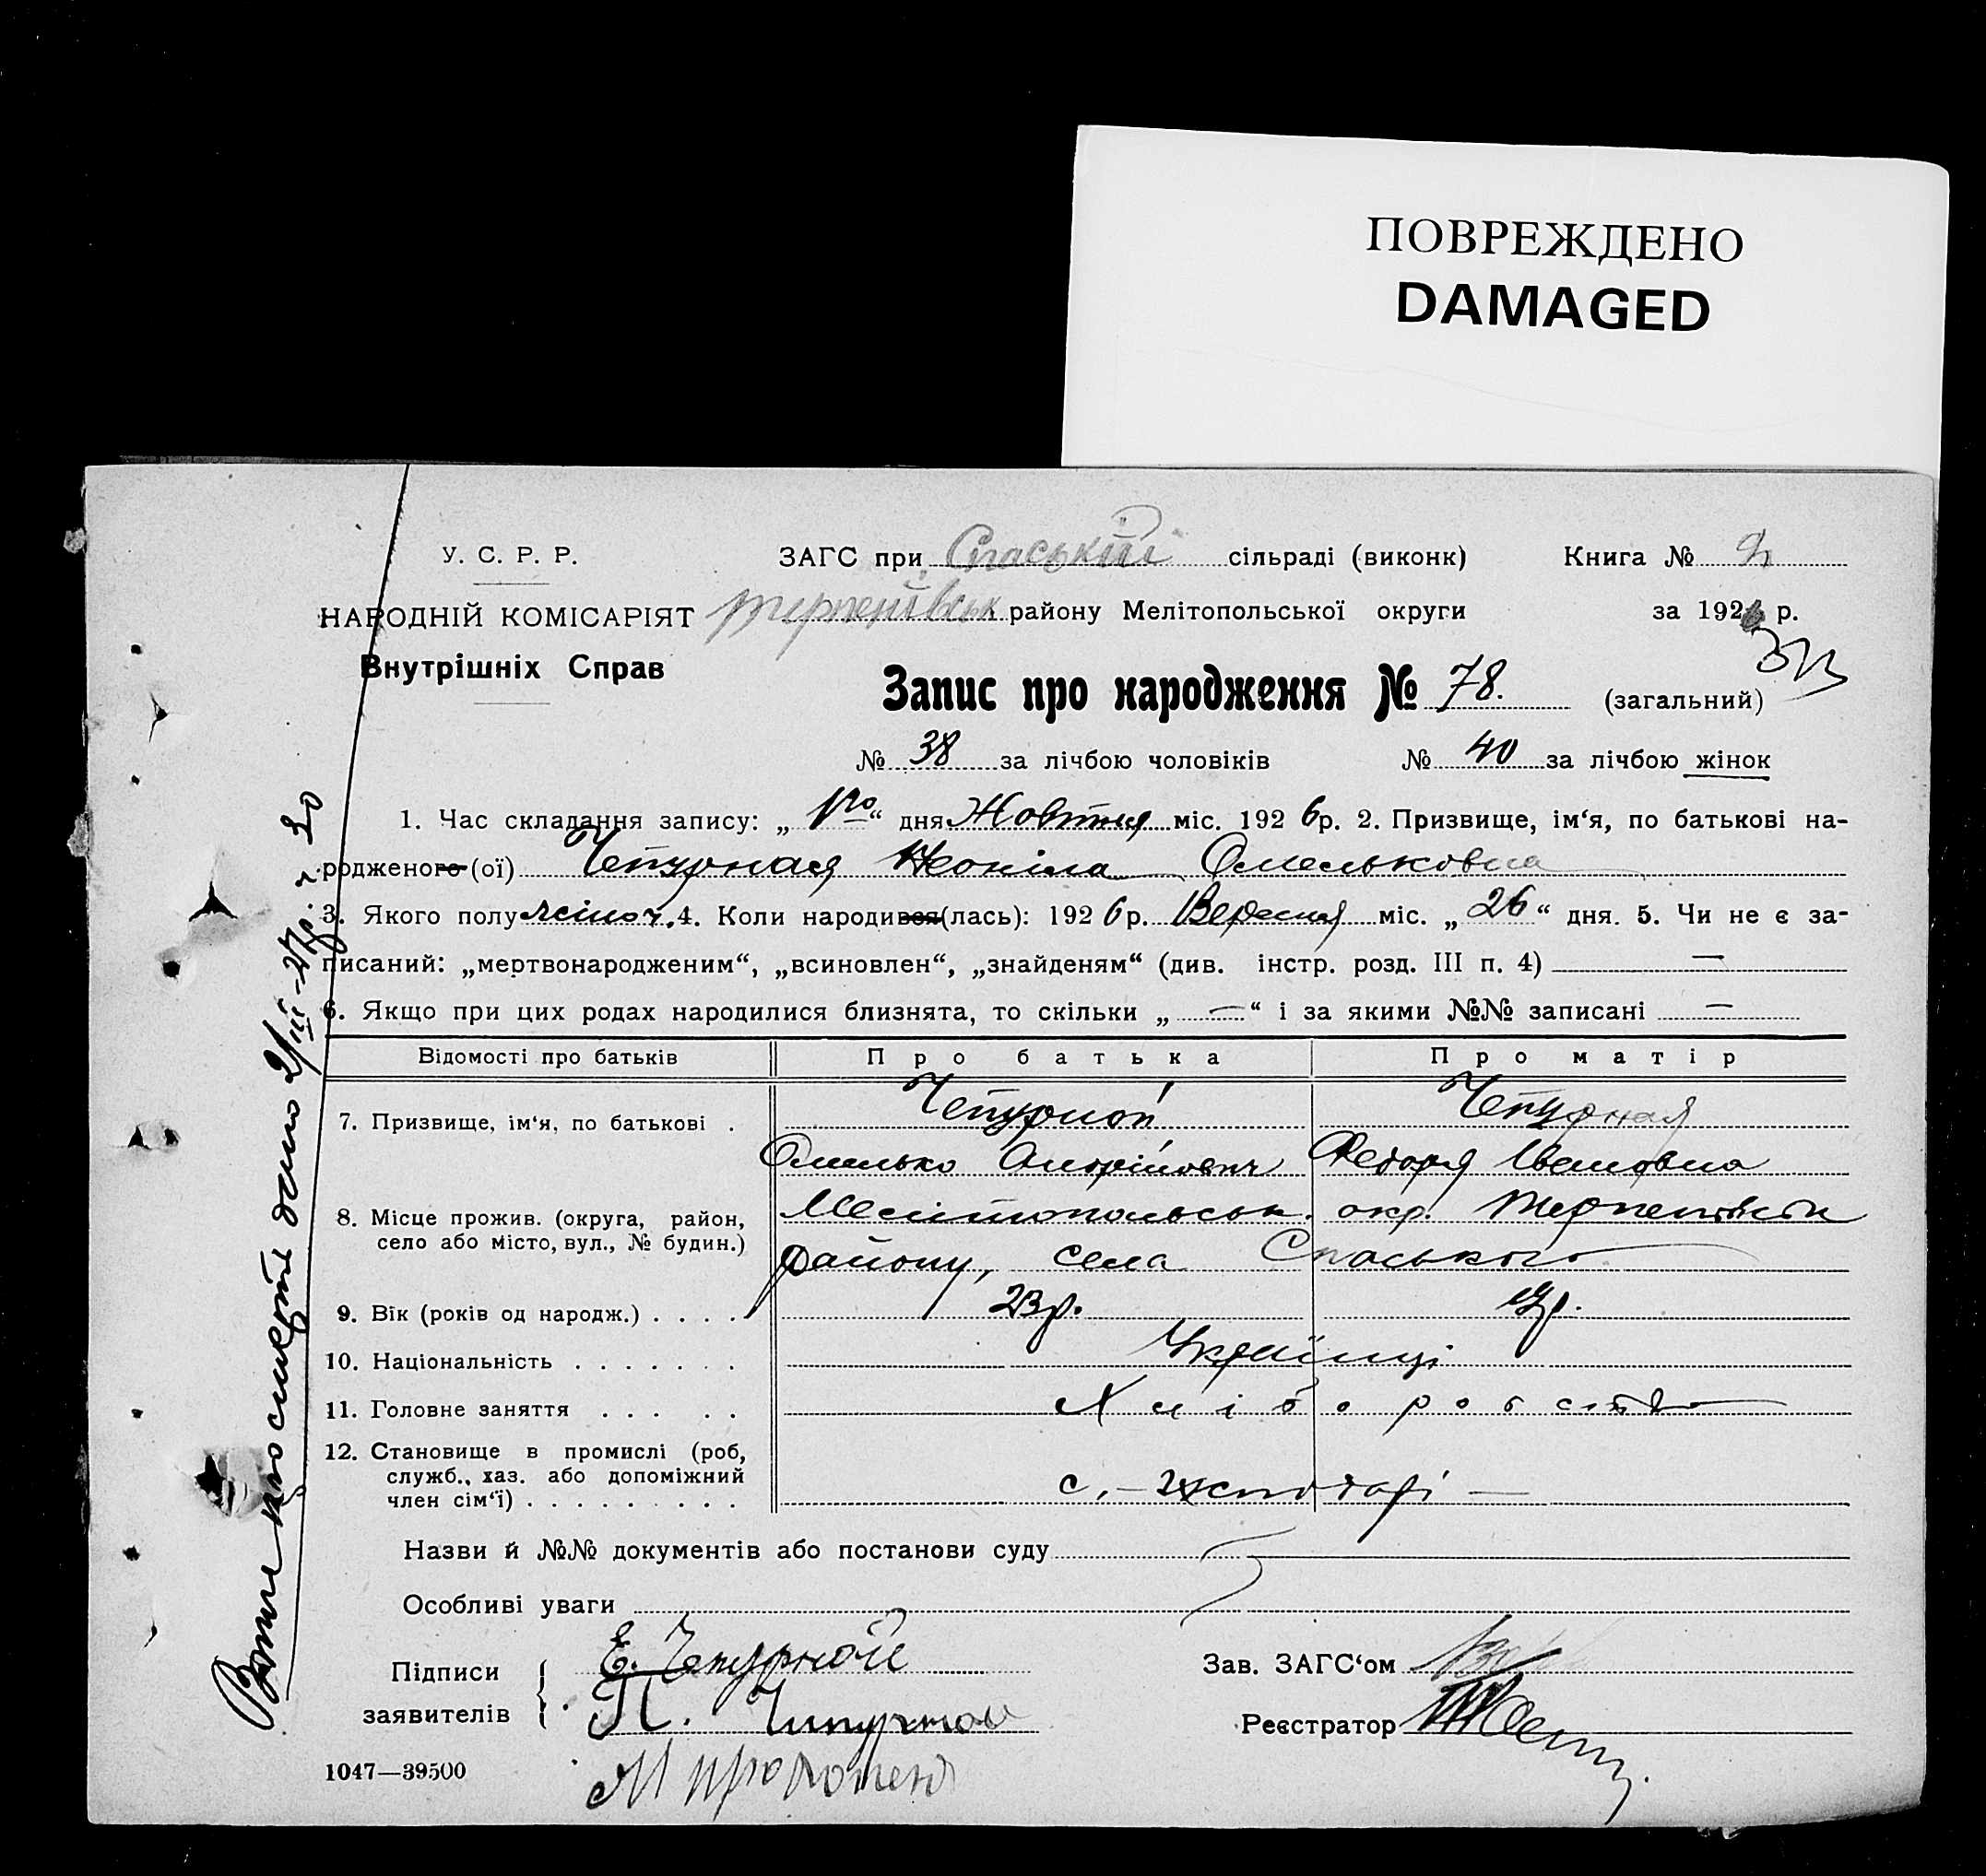 ПОВРЕЖДЕНО
DAMAGED
У. С. Р. Р.
НАРОДНІЙ КОМІСАРІЯТ
Внутрішніх Справ
ЗАГС при Спаській сільраді (виконк) Книга №
Терпенівськ району Мелітопольської округи за 1926 р.
Запис про народження № 78. (загальний)
№ 38 за лічбою чоловіків № 40 за лічбою жінок
1. Час складання запису: „ 1го “ дня Жовтня міс. 1926 р. 2. Призвище, ім‘я, по батькові на-
родженого (ої) Чепурная Неоніла Омельковна
3. Якого полу жіноч. 4. Коли народився (лась): 1926 р. Вересня міс. „ 26 “ дня. 5. Чи не є за-
писаний: „мертвонародженим“, „всиновлен“, „знайденям“ (див. інстр. розд. III п. 4) —
6. Якщо при цих родах народилися близнята, то скільки „ — “ і за якими №№ записані —
Відомості про батьків Про батька Про матір
7. Призвище, ім‘я, по батькові . Чепурной Чепурная
Омелько Андрійович Федора Івановна
8. Місце прожив. (округа, район, село або місто, вул., № будин.) Мелітопольськ. окр. Терпенівськ
району, села Спаського
9. Вік (років од народж.) . . . . 23 р.
10. Національність . . . . . . . Українці
11. Головне заняття . . . . . Хліборобство
12. Становище в промислі (роб, служб., хаз. або допоміжний член сім‘ї) . . . . . . . . . с.-господарі —
Назви й №№ документів або постанови суду
Особливі уваги
Підписи заявителів { Е. Чепурной
П. Чипурной
Зав. ЗАГС‘ом
Реєстратор
1047—39500